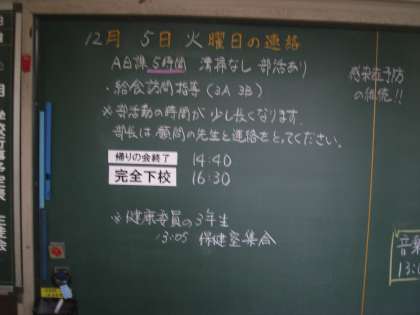 12月 5日 火曜日の連絡
A日課 5時間 清掃なし 部活あり
・給食訪問指導(3A 3B)
※部活動の時間が少し長くなります。
部長は顧問の先生と連絡をとってください。
帰りの会終了 14:40
完全下校 16:30
※健康委員の3年生
13:05 保健室集合
感染症予防
の継続!!
音楽